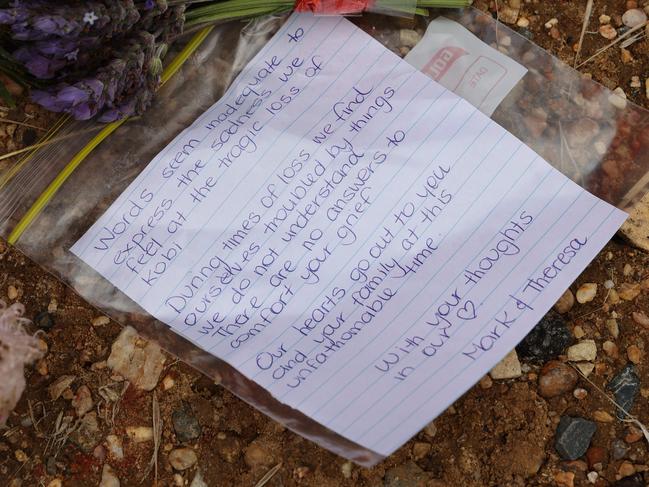 Words seem inadequate to
express the sadness we
feel at the tragic loss of
Kobi
During times of loss we find
ourselves troubled by things
we do not understand
There are no answers to
comfort your grief
Our hearts go out to you
and your family at this
unfathomable time.
With your thoughts
in our ♡
Mark & Theresa
DATE